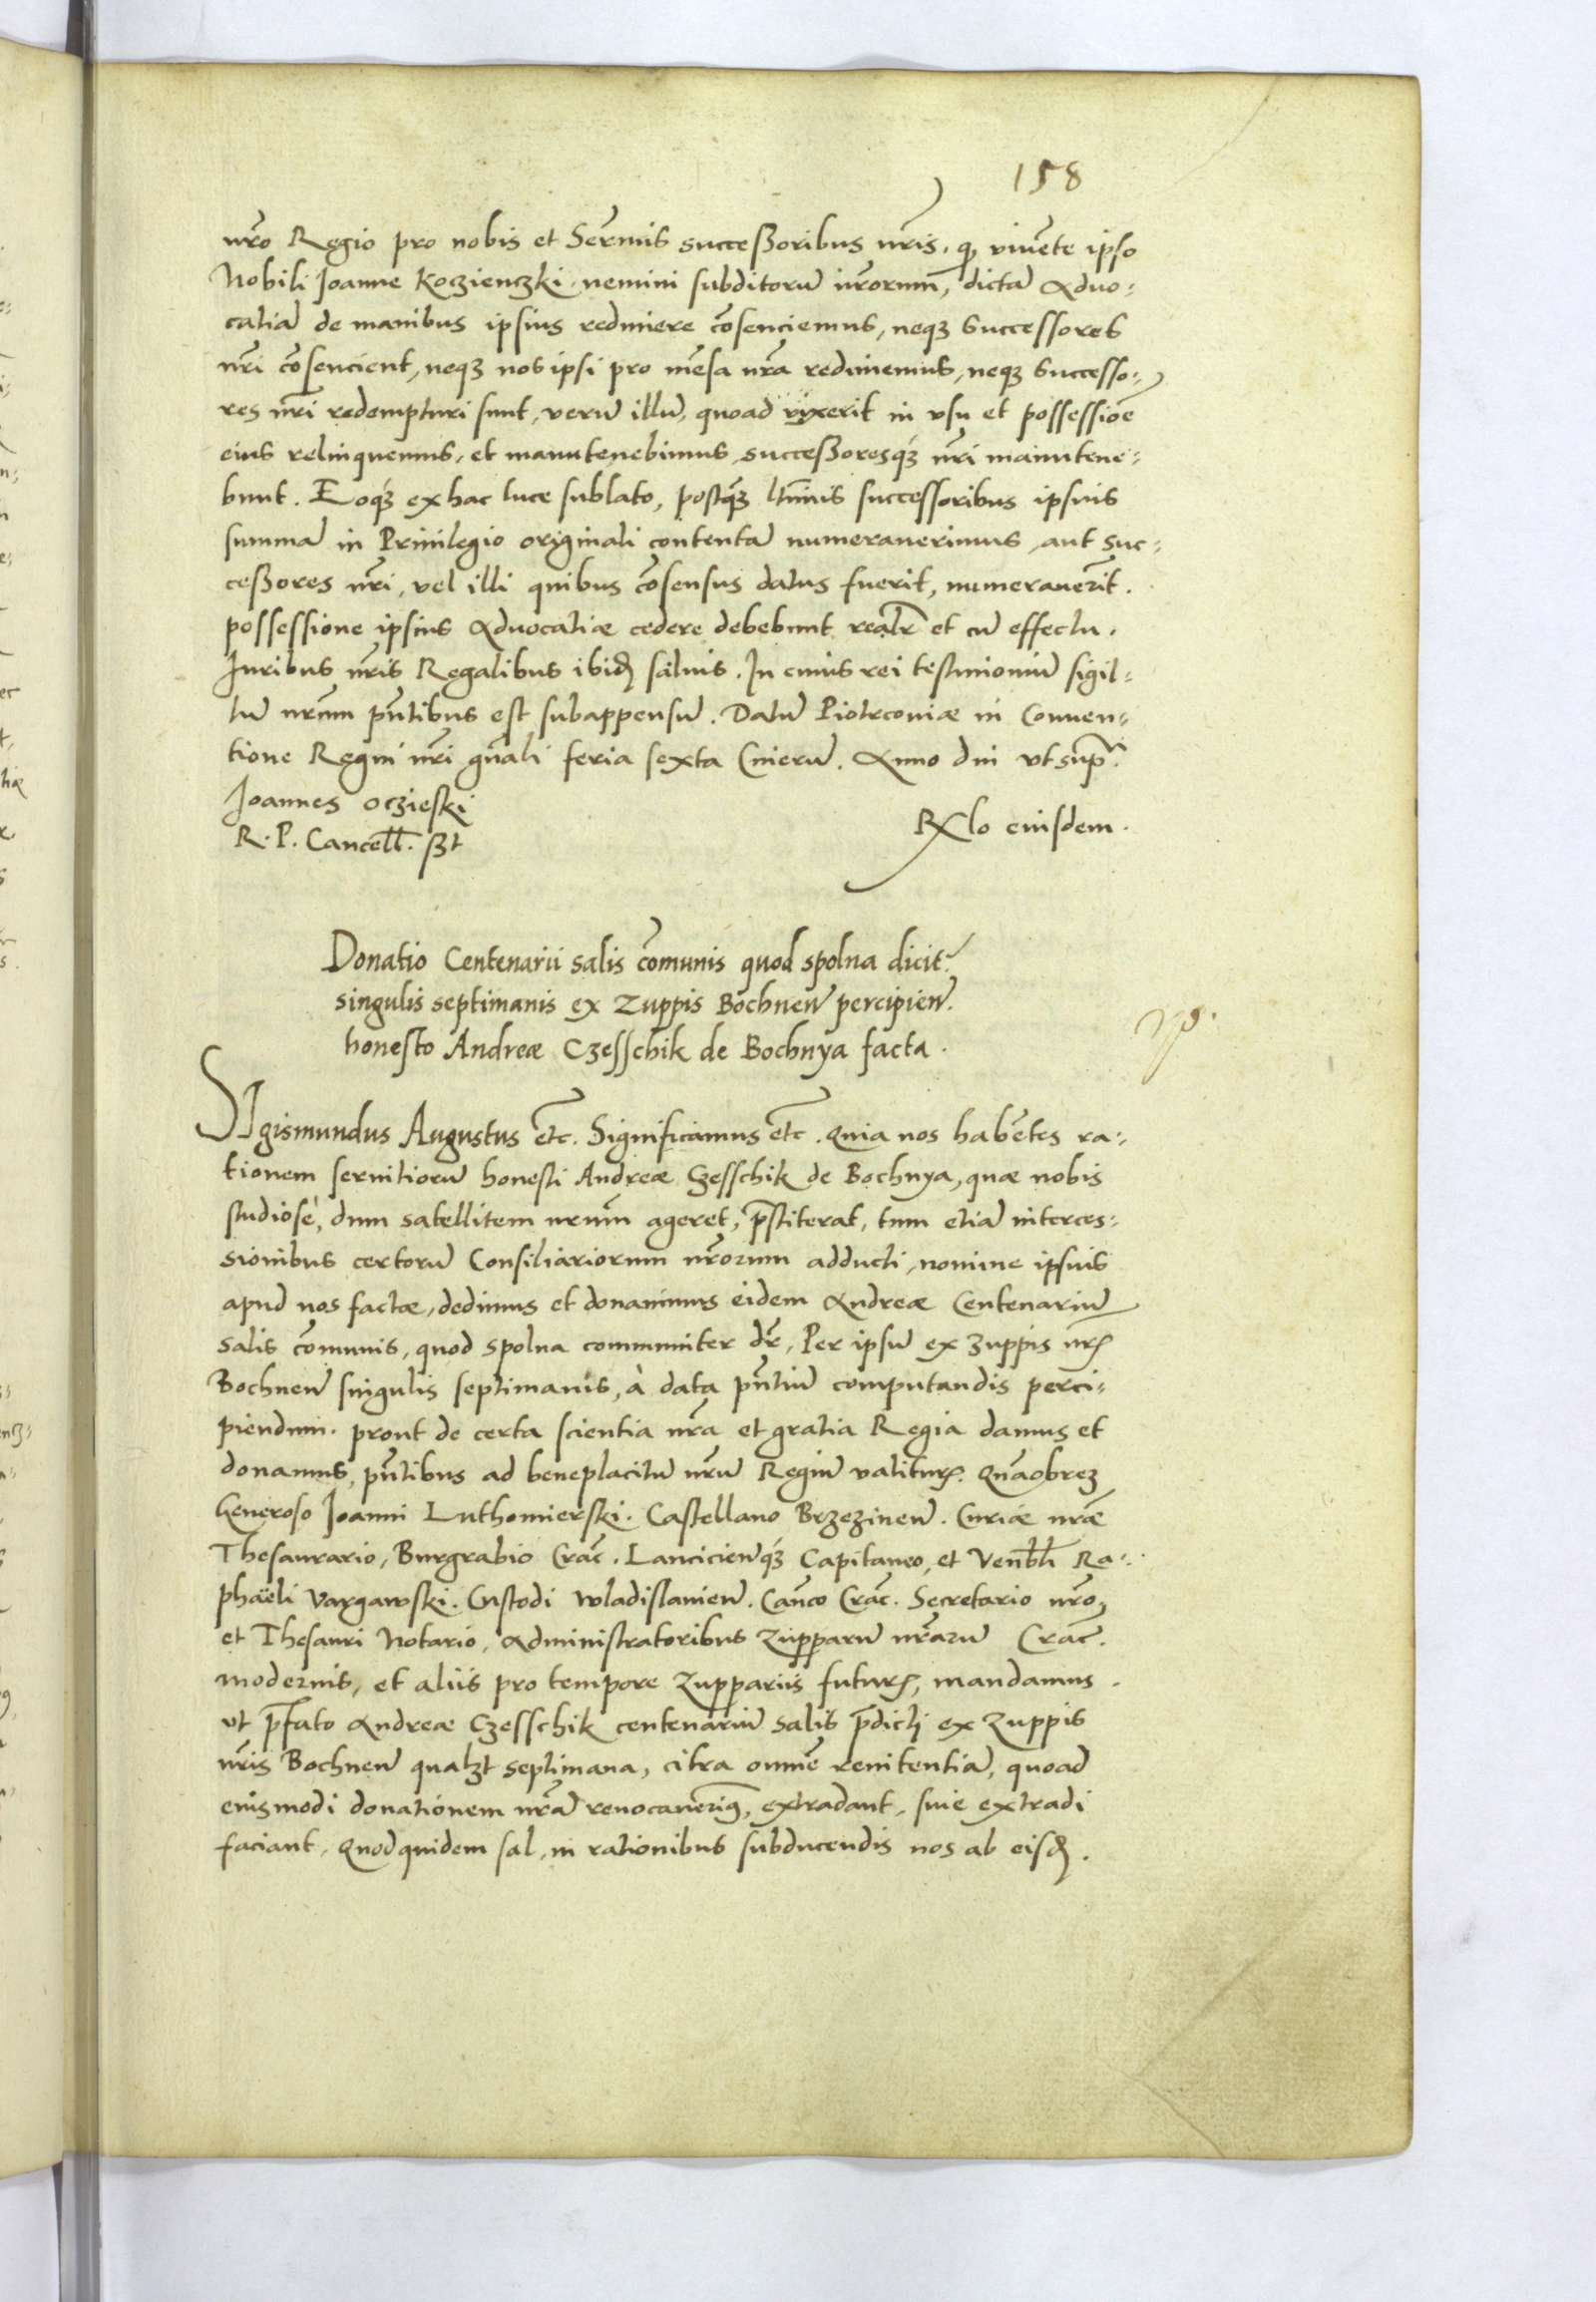 158
nr̃o Regio pro nobis et Serm̃is succeßoribus nr̃is. qꝫ vivẽte ipso
Nobili Joanne Koczienczki. nemini subditorũ nr̃orum, dictã Aduo-
catiã de manibus ipsius redimere cõsenciemus, neqꝫ successores
nr̃i cõsencient, neqꝫ nos ipsi pro mẽsa nr̃a redimemus, neqꝫ successo-
res nr̃i redempturi sunt, verũ illũ, quoad vixerit in vsu et possessiõe
eius relinquemus, et manutenebimus, succeßoresqꝫ nr̃i manutene-
bunt. Eoqꝫ ex hac luce sublato, postqꝫ ltĩmis successoribus ipsius
summã in Priuilegio originali contentã numerauerimus, aut suc-
ceßores nr̃i, vel illi quibus cõsensus datus fuerit, numerauerĩt.
possessione ipsius Aduocatiæ cedere debebunt realr̃ et cũ effectu.
Juribus nr̃is Regalibus ibidꝫ saluis. In cuius rei testimoniũ sigil-
lũ nr̃um pñtibus est subappensũ. Datũ Piotrcouiæ in Conuen-
tione Regni nr̃i gñali feria sexta Cinerũ. Anno dni vt supr̃.
Joannes Oczieski
R. P. Cancell̃. sßt
Rlo eiusdem.
Donatio Centenarii salis cõmunis quod spolna dicit̃
singulis septimanis ex Zuppis Bochneñ percipieñ.
honesto Andreæ Czesschik de Bochnya facta.
SIgismundus Augustus etc̃. Significamus etc̃. Quia nos habẽtes ra-
tionem seruitiorũ honesti Andreæ Czesschik de Bochnya, quæ nobis
studiosè, dum satellitem nrũm ageret, p̃stiterat, tum etiã interces-
sionibus certorũ Consiliariorum nr̃orum adducti, nomine ipsius
apud nos factæ, dedimus et donauimus eidem Andreæ Centenariũ
salis cõmunis, quod spolna communiter dr̃, Per ipsũ ex zuppis nrꝫ
Bochneñ singulis septimanis, à data pñtiũ computandis perci-
piendum. prout de certa scientia nr̃a et gratia Regia damus et
donamus, pñtibus ad beneplacitũ nr̃ũ Regiũ valiturꝫ. Quãobrez
Generoso Joanni Luthomierski. Castellano Brzezineñ. Curiæ nr̃æ
Thesaurario, Burgrabio Crac̃. Lancicieñqꝫ Capitaneo, et Venbl̃i Ra-
phaëli Vargawski. Custodi Wladislauieñ. Cañco Crac̃. Secretario nr̃o,
et Thesauri Notario, Administratoribus Zupparũ nr̃arũ Crac̃.
modernis, et aliis pro tempore Zuppariis futurꝫ, mandamus.
vt p̃fato Andreæ Czesschik centenariũ salis p̃dicti ex Zuppis
nr̃is Bochneñ qualꝫt septimana, citra omnẽ renitentiã, quoad
eiusmodi donationem nr̃ã reuocauerimꝰ, extradant, siue extradi
faciant, Quodquidem sal, in rationibus subducendis nos ab eisdꝫ.